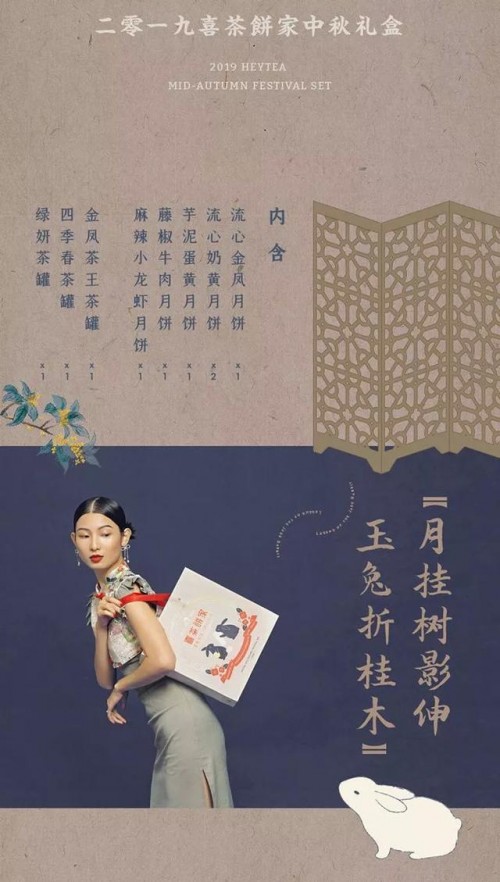 二零一九喜茶餅家中秋礼盒
2019 HEYTEA
MID-AUTUMN FESTIVAL SET
内含
流心金凤月饼 x1
流心奶黄月饼 x2
芋泥蛋黄月饼 x1
藤椒牛肉月饼 x1
麻辣小龙虾月饼 x1
金凤茶王茶罐 x1
四季春茶罐 x1
绿妍茶罐 x1
【月挂树影伸
玉兔折桂木】
喜茶餅家